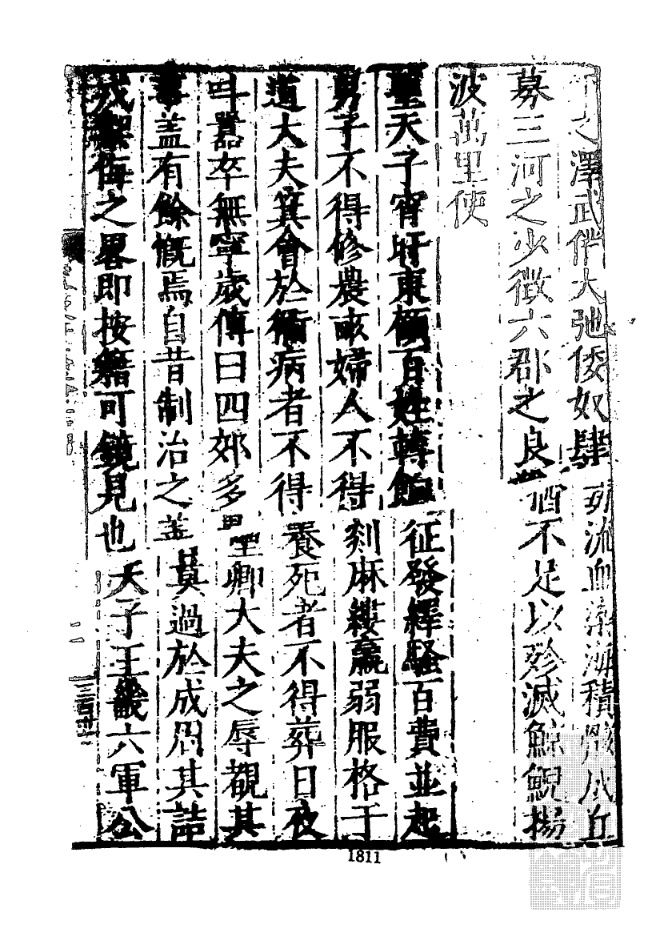 之澤武備大弛倭奴肆劫流血染海積骸成丘
募三河之少徵六郡之良猶不足以殄滅鯨鯢揚
波萬里使
聖天子宵旰東顧百姓轉餉征發繹騷百費並起
男子不得修農畝婦人不得剡麻縷羸弱服格于
道大夫箕會於衢病者不得養死者不得葬日夜
叫囂卒無寧歲傳曰四郊多壘卿大夫之辱觀其
事蓋有餘慨焉自昔制治之善莫過於成周其詰
戎禦侮之畧即按籍可鏡見也天子王畿六軍公
1811